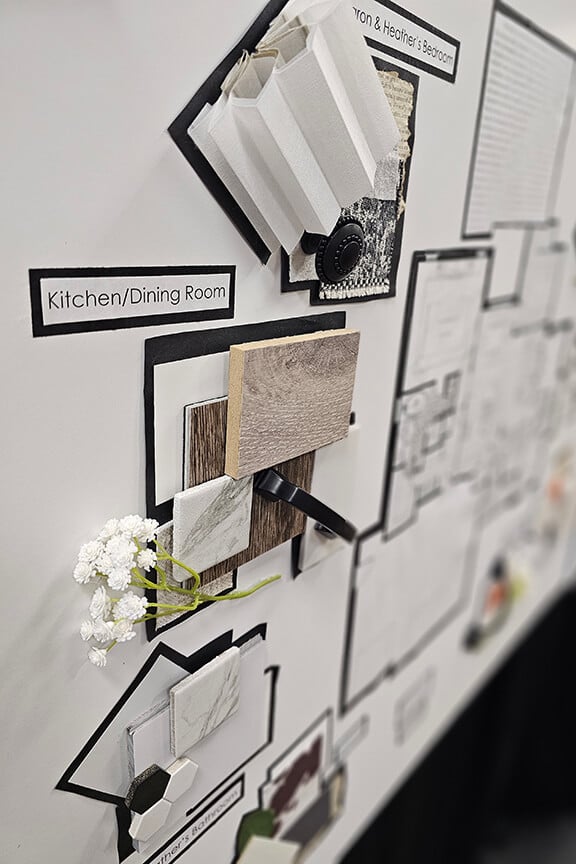 & Heather's Bedroom
Kitchen/Dining Room
Bathroom